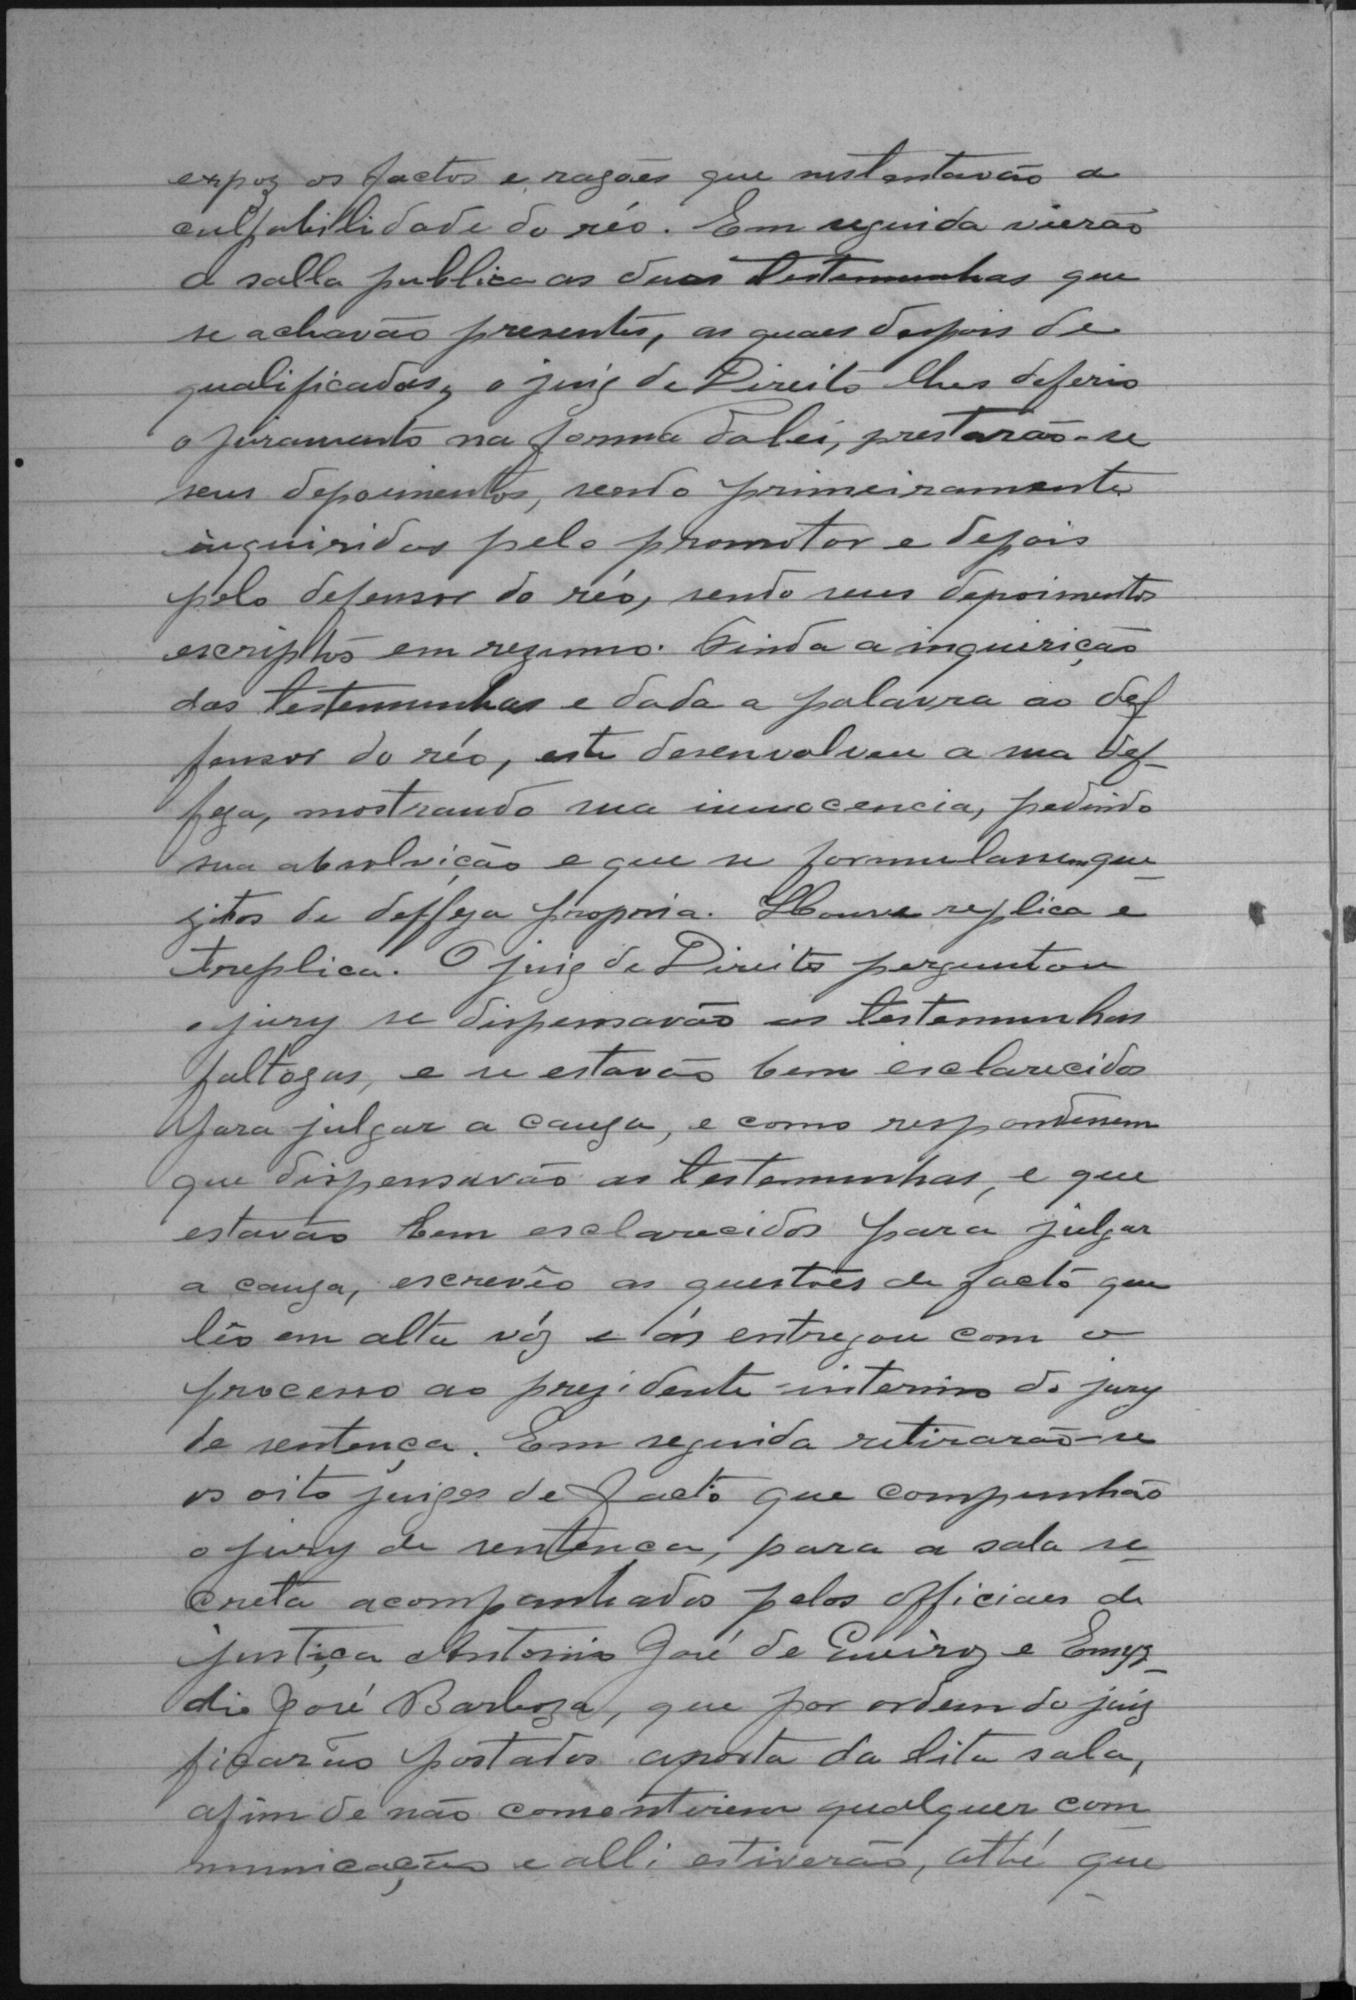 expoz os factos e razões que sustentavão a
culpabillidade do réo. Em seguida vierão
a salla publica as duas testemunhas que
se achavão presentes, as quaes depois de
qualificadas, o juiz de Direito lhes deferio
o juramento na forma da lei, prestarão-se
seus depoimentos, sendo primeiramente
inquiridas pelo promotor e depois
pelo defensor do réo, sendo seus depoimentos
escriptos em rezumo. Finda a inquirição
das testemunhas e dada a palavra ao def
fensor do réo, este desenvolveu a sua def-
feza, mostrando sua innocencia, pedindo
sua absolvição e que se formulassem que-
zitos de deffeza propria. Houve replica e
treplica. O juiz de Direito perguntou
o jury se dispensavão as testemunhas
faltozas, e se estavão bem esclarecidos
para julgar a cauza, e como respondessem
que dispensavão as testemunhas, e que
estavão bem esclarecidos para julgar
a cauza, escrevêo as questões de facto que
lêo em alta vóz e ás entregou com o
processo ao prezidente interino do jury
de sentença. Em seguida retirarão-se
os oito juizes de facto que compunhão
o jury de sentença, para a sala se-
creta acompanhados pelos officiaes de
justiça Antonio José de Queiroz e Emyg-
dio José Barboza, que por ordem do juiz
ficarão postados aporta da dita sala,
afim de não consentirem qualquer com-
municação e alli estiverão, athé que